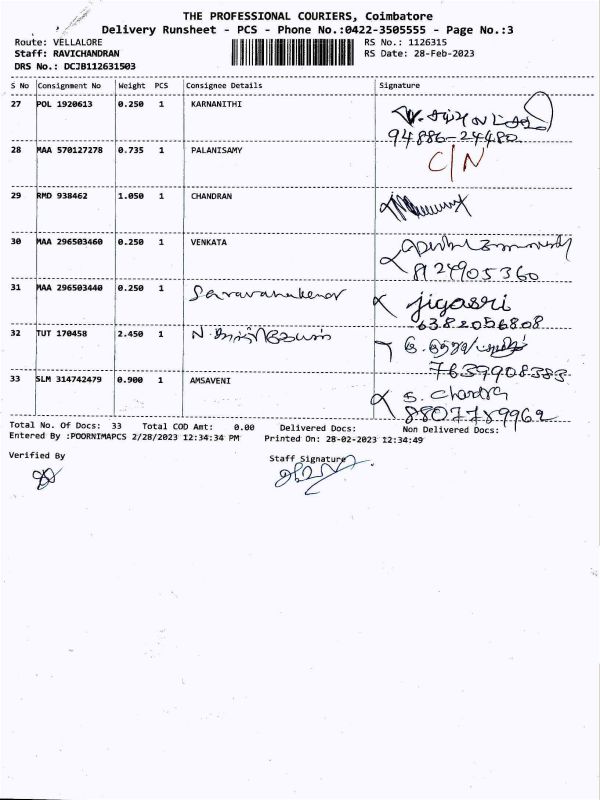 THE PROFESSIONAL COURIERS, Coimbatore
Delivery Runsheet - PCS - Phone No.:0422-3505555 - Page No.:3
Route: VELLALORE RS No.: 1126315
Staff: RAVICHANDRAN RS Date: 28-Feb-2023
DRS No.: DCJB112631503
S No Consignment No Weight PCS Consignee Details Signature
27 POL 1920613 0.250 1 KARNANITHI
94886-24480
28 MAA 570127278 0.735 1 PALANISAMY C/N
29 RMD 938462 1.050 1 CHANDRAN
30 MAA 296503460 0.250 1 VENKATA
8124905360
31 MAA 296503440 0.250 1 jigasri
6382056808
32 TUT 170458 2.450 1
7639908383
33 SLM 314742479 0.900 1 AMSAVENI S. Chandra
8807789962
Total No. Of Docs: 33 Total COD Amt: 0.00 Delivered Docs: Non Delivered Docs:
Entered By :POORNIMAPCS 2/28/2023 12:34:34 PM Printed On: 28-02-2023 12:34:49
Verified By Staff Signature